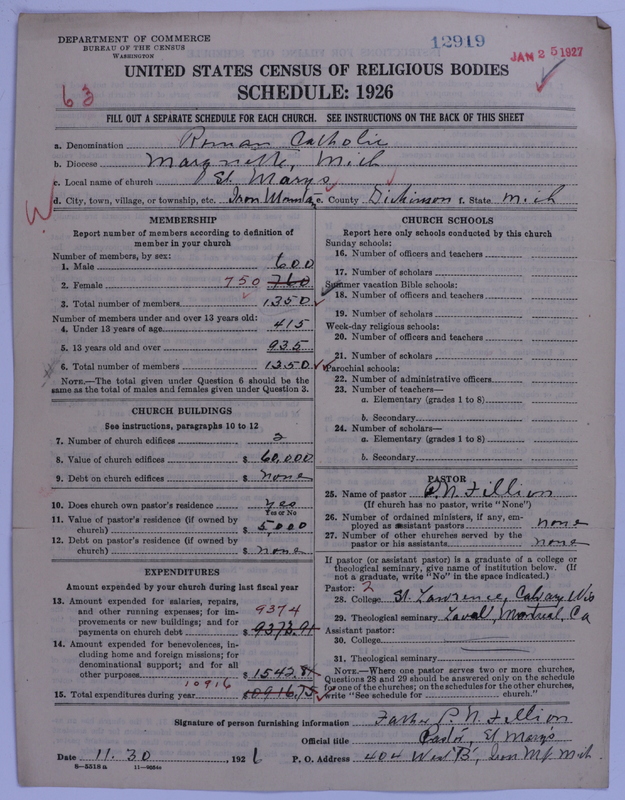 DEPARTMENT OF COMMERCE
BUREAU OF THE CENSUS
WASHINGTON
12919
JAN 25 1927
UNITED STATES CENSUS OF RELIGIOUS BODIES
SCHEDULE: 1926
63
FILL OUT A SEPARATE SCHEDULE FOR EACH CHURCH. SEE INSTRUCTIONS ON THE BACK OF THIS SHEET
a. Denomination Roman Catholic
b. Diocese Marquette, Mich
c. Local name of church St. Marys
d. City, town, village, or township, etc. Iron Mountain e. County Dickinson f. State Mich
W
MEMBERSHIP
Report number of members according to definition of
member in your church
Number of members, by sex:
1. Male 600
2. Female 750 760
3. Total number of members 1350
Number of members under and over 13 years old:
4. Under 13 years of age 415
5. 13 years old and over 935
6. Total number of members 1350
NOTE.—The total given under Question 6 should be the
same as the total of males and females given under Question 3.
CHURCH BUILDINGS
See instructions, paragraphs 10 to 12
7. Number of church edifices 2
8. Value of church edifices $ 60,000
9. Debt on church edifices $ none
10. Does church own pastor's residence yes
Yes or No
11. Value of pastor's residence (if owned by
church) $ 5,000
12. Debt on pastor's residence (if owned by
church) $ none
EXPENDITURES
Amount expended by your church during last fiscal year
13. Amount expended for salaries, repairs,
and other running expenses; for im-
provements or new buildings; and for
payments on church debt 9374 $ 9373.91
14. Amount expended for benevolences, in-
cluding home and foreign missions; for
denominational support; and for all
other purposes $ 1542.84
15. Total expenditures during year 10916 $ 10916.75
CHURCH SCHOOLS
Report here only schools conducted by this church
Sunday schools:
16. Number of officers and teachers
17. Number of scholars
Summer vacation Bible schools:
18. Number of officers and teachers
19. Number of scholars
Week-day religious schools:
20. Number of officers and teachers
21. Number of scholars
Parochial schools:
22. Number of administrative officers
23. Number of teachers—
a. Elementary (grades 1 to 8)
b. Secondary
24. Number of scholars—
a. Elementary (grades 1 to 8)
b. Secondary
PASTOR
25. Name of pastor P. N. Fillion
(If church has no pastor, write "None")
26. Number of ordained ministers, if any, em-
ployed as assistant pastors none
27. Number of other churches served by the
pastor or his assistants none
If pastor (or assistant pastor) is a graduate of a college or
theological seminary, give name of institution below. (If
not a graduate, write "No" in the space indicated.)
Pastor: 2
28. College St. Lawrence, Calvary Wis
29. Theological seminary Laval, Montreal, Ca
Assistant pastor:
30. College
31. Theological seminary
NOTE.—Where one pastor serves two or more churches,
Questions 28 and 29 should be answered only on the schedule
for one of the churches; on the schedules for the other churches,
write "See schedule for church."
Signature of person furnishing information Father P. N. Fillion
Official title Pastor, St Marys
Date 11.30, 1926 P. O. Address 404 West "B", Iron Mt Mich.
8—5518 a